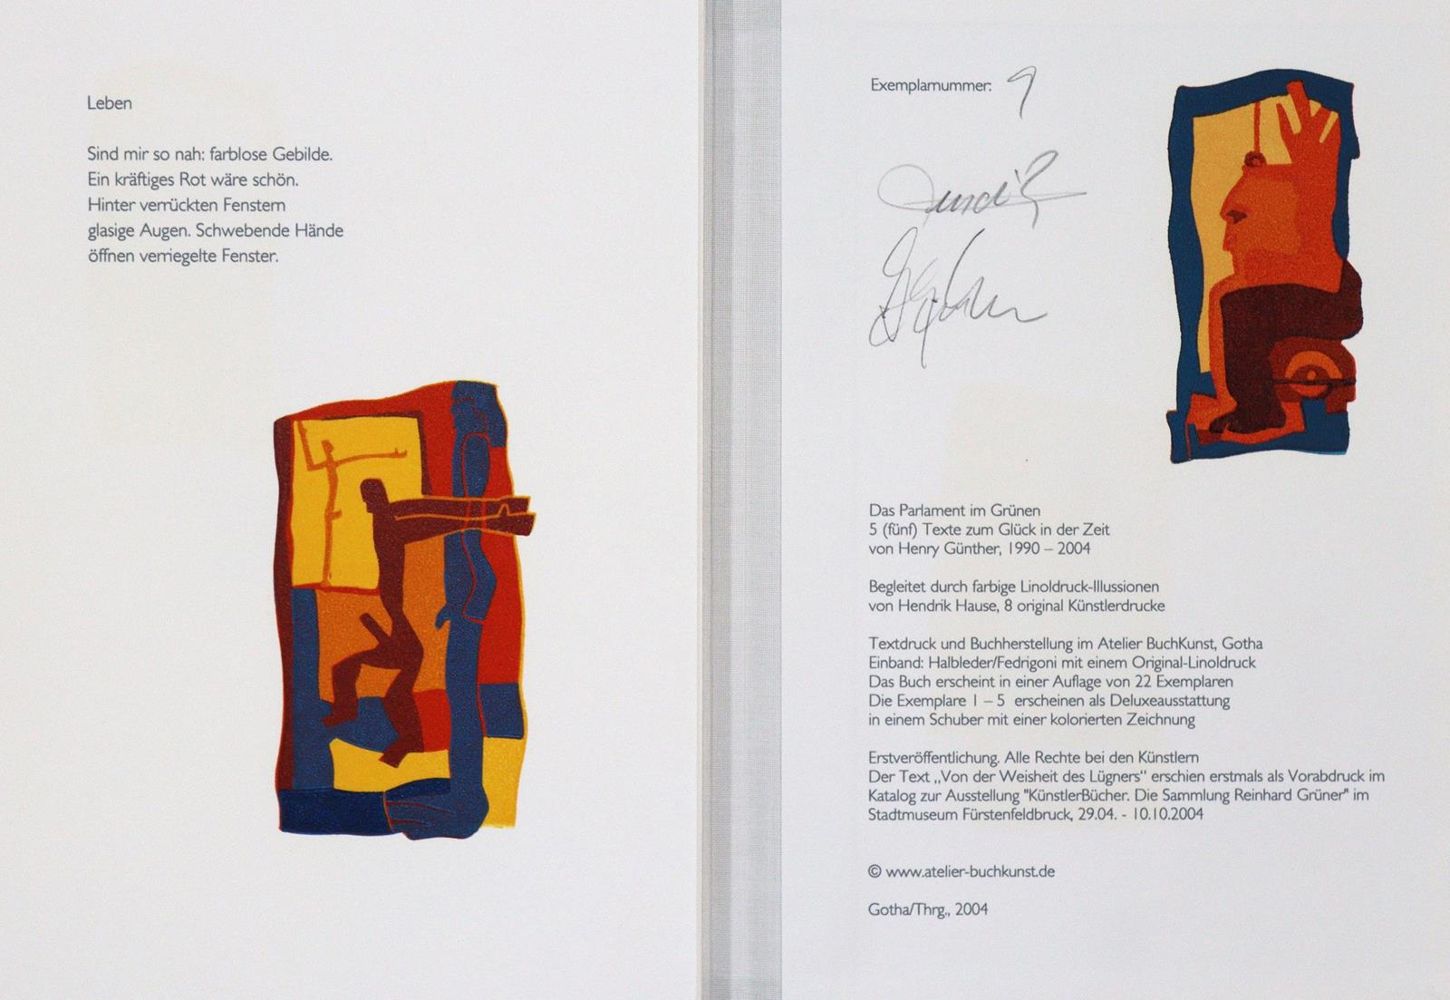 Leben
Sind mir so nah: farblose Gebilde.
Ein kräftiges Rot wäre schön.
Hinter verrückten Fenstern
glasige Augen. Schwebende Hände
öffnen verriegelte Fenster.
Exemplarnummer: 9
Das Parlament im Grünen
5 (fünf) Texte zum Glück in der Zeit
von Henry Günther, 1990 – 2004
Begleitet durch farbige Linoldruck-Illussionen
von Hendrik Hause, 8 original Künstlerdrucke
Textdruck und Buchherstellung im Atelier BuchKunst, Gotha
Einband: Halbleder/Fedrigoni mit einem Original-Linoldruck
Das Buch erscheint in einer Auflage von 22 Exemplaren
Die Exemplare 1 – 5 erscheinen als Deluxeausstattung
in einem Schuber mit einer kolorierten Zeichnung
Erstveröffentlichung. Alle Rechte bei den Künstlern
Der Text „Von der Weisheit des Lügners“ erschien erstmals als Vorabdruck im
Katalog zur Ausstellung "KünstlerBücher. Die Sammlung Reinhard Grüner" im
Stadtmuseum Fürstenfeldbruck, 29.04. - 10.10.2004
© www.atelier-buchkunst.de
Gotha/Thrg., 2004